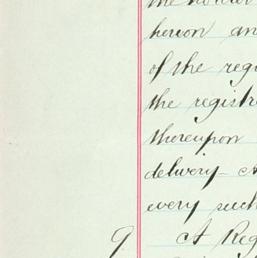 the holder
hereon an
of the regi
the registr
thereupon
delivery A
every such
9. A Reg